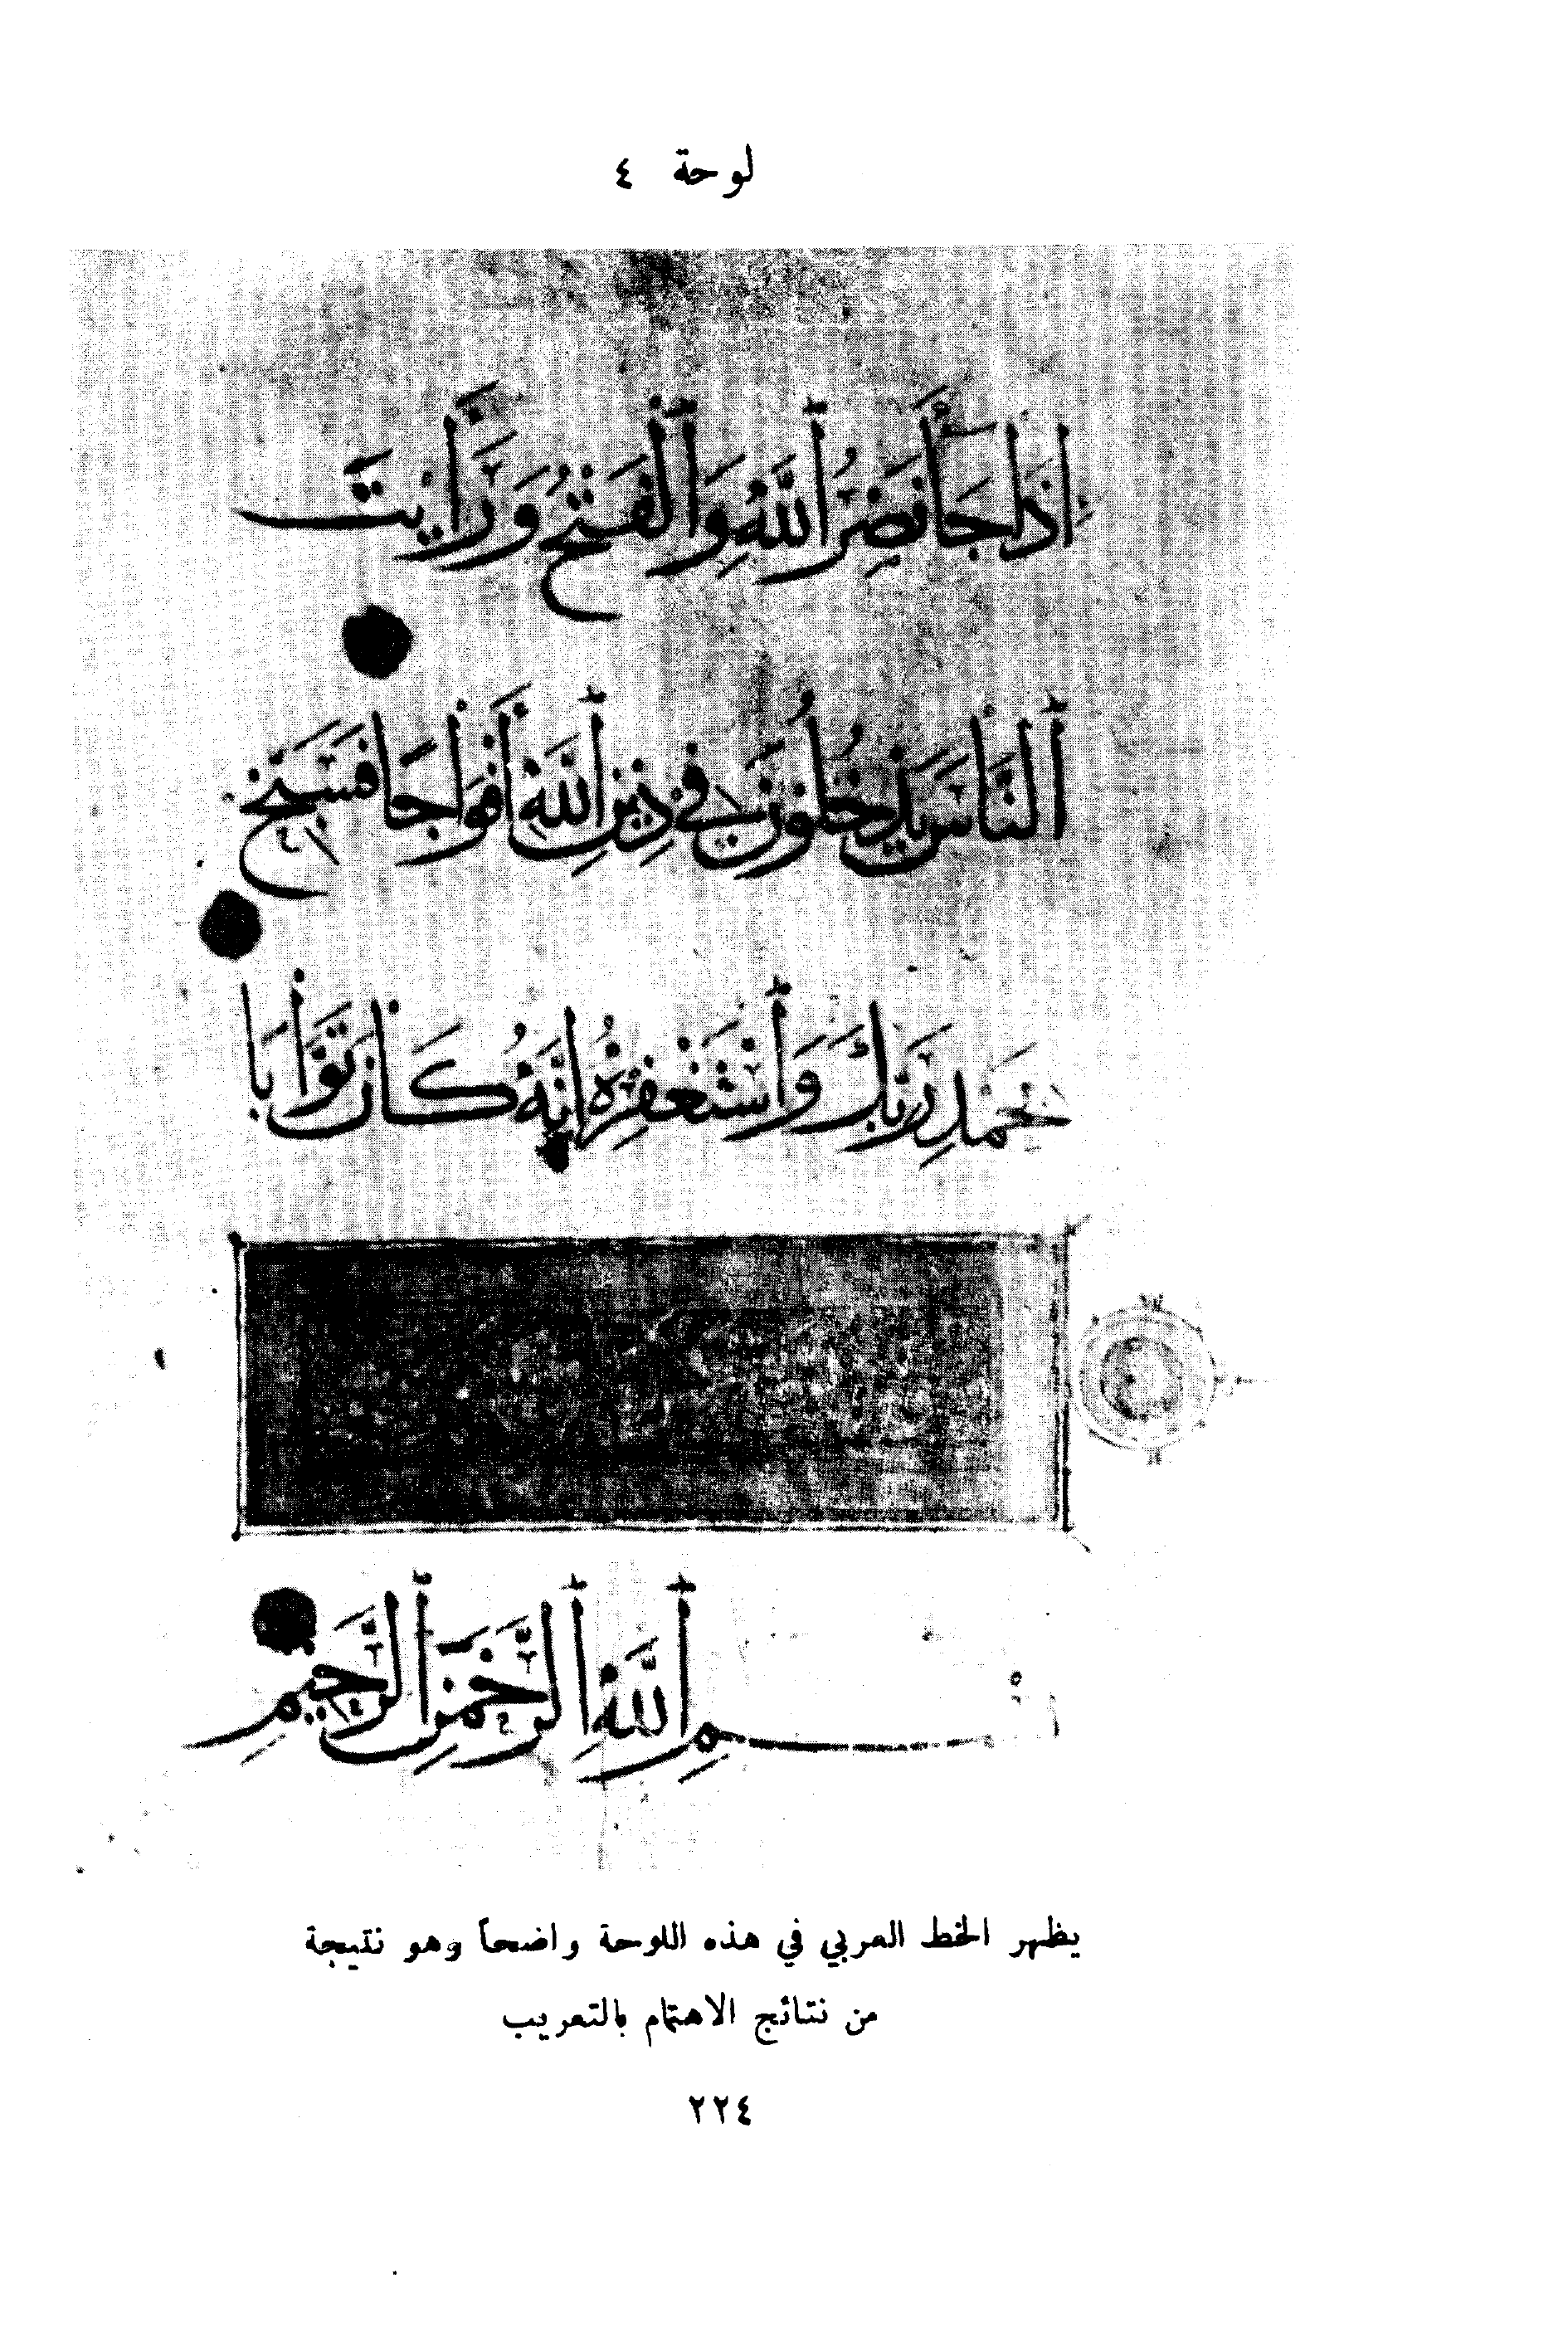 لوحة ٤
إِذَا جَاءَ نَصْرُ ٱللَّهِ وَٱلْفَتْحُ وَرَأَيْتَ
ٱلنَّاسَ يَدْخُلُونَ فِي دِينِ ٱللَّهِ أَفْوَاجًا فَسَبِّحْ
بِحَمْدِ رَبِّكَ وَٱسْتَغْفِرْهُ إِنَّهُ كَانَ تَوَّابًا
بسم ٱللَّهِ ٱلرَّحْمَٰنِ ٱلرَّحِيمِ
يظهر الخط العربي في هذه اللوحة واضحاً وهو نتيجة
من نتائج الاهتمام بالتعريب
٢٢٤